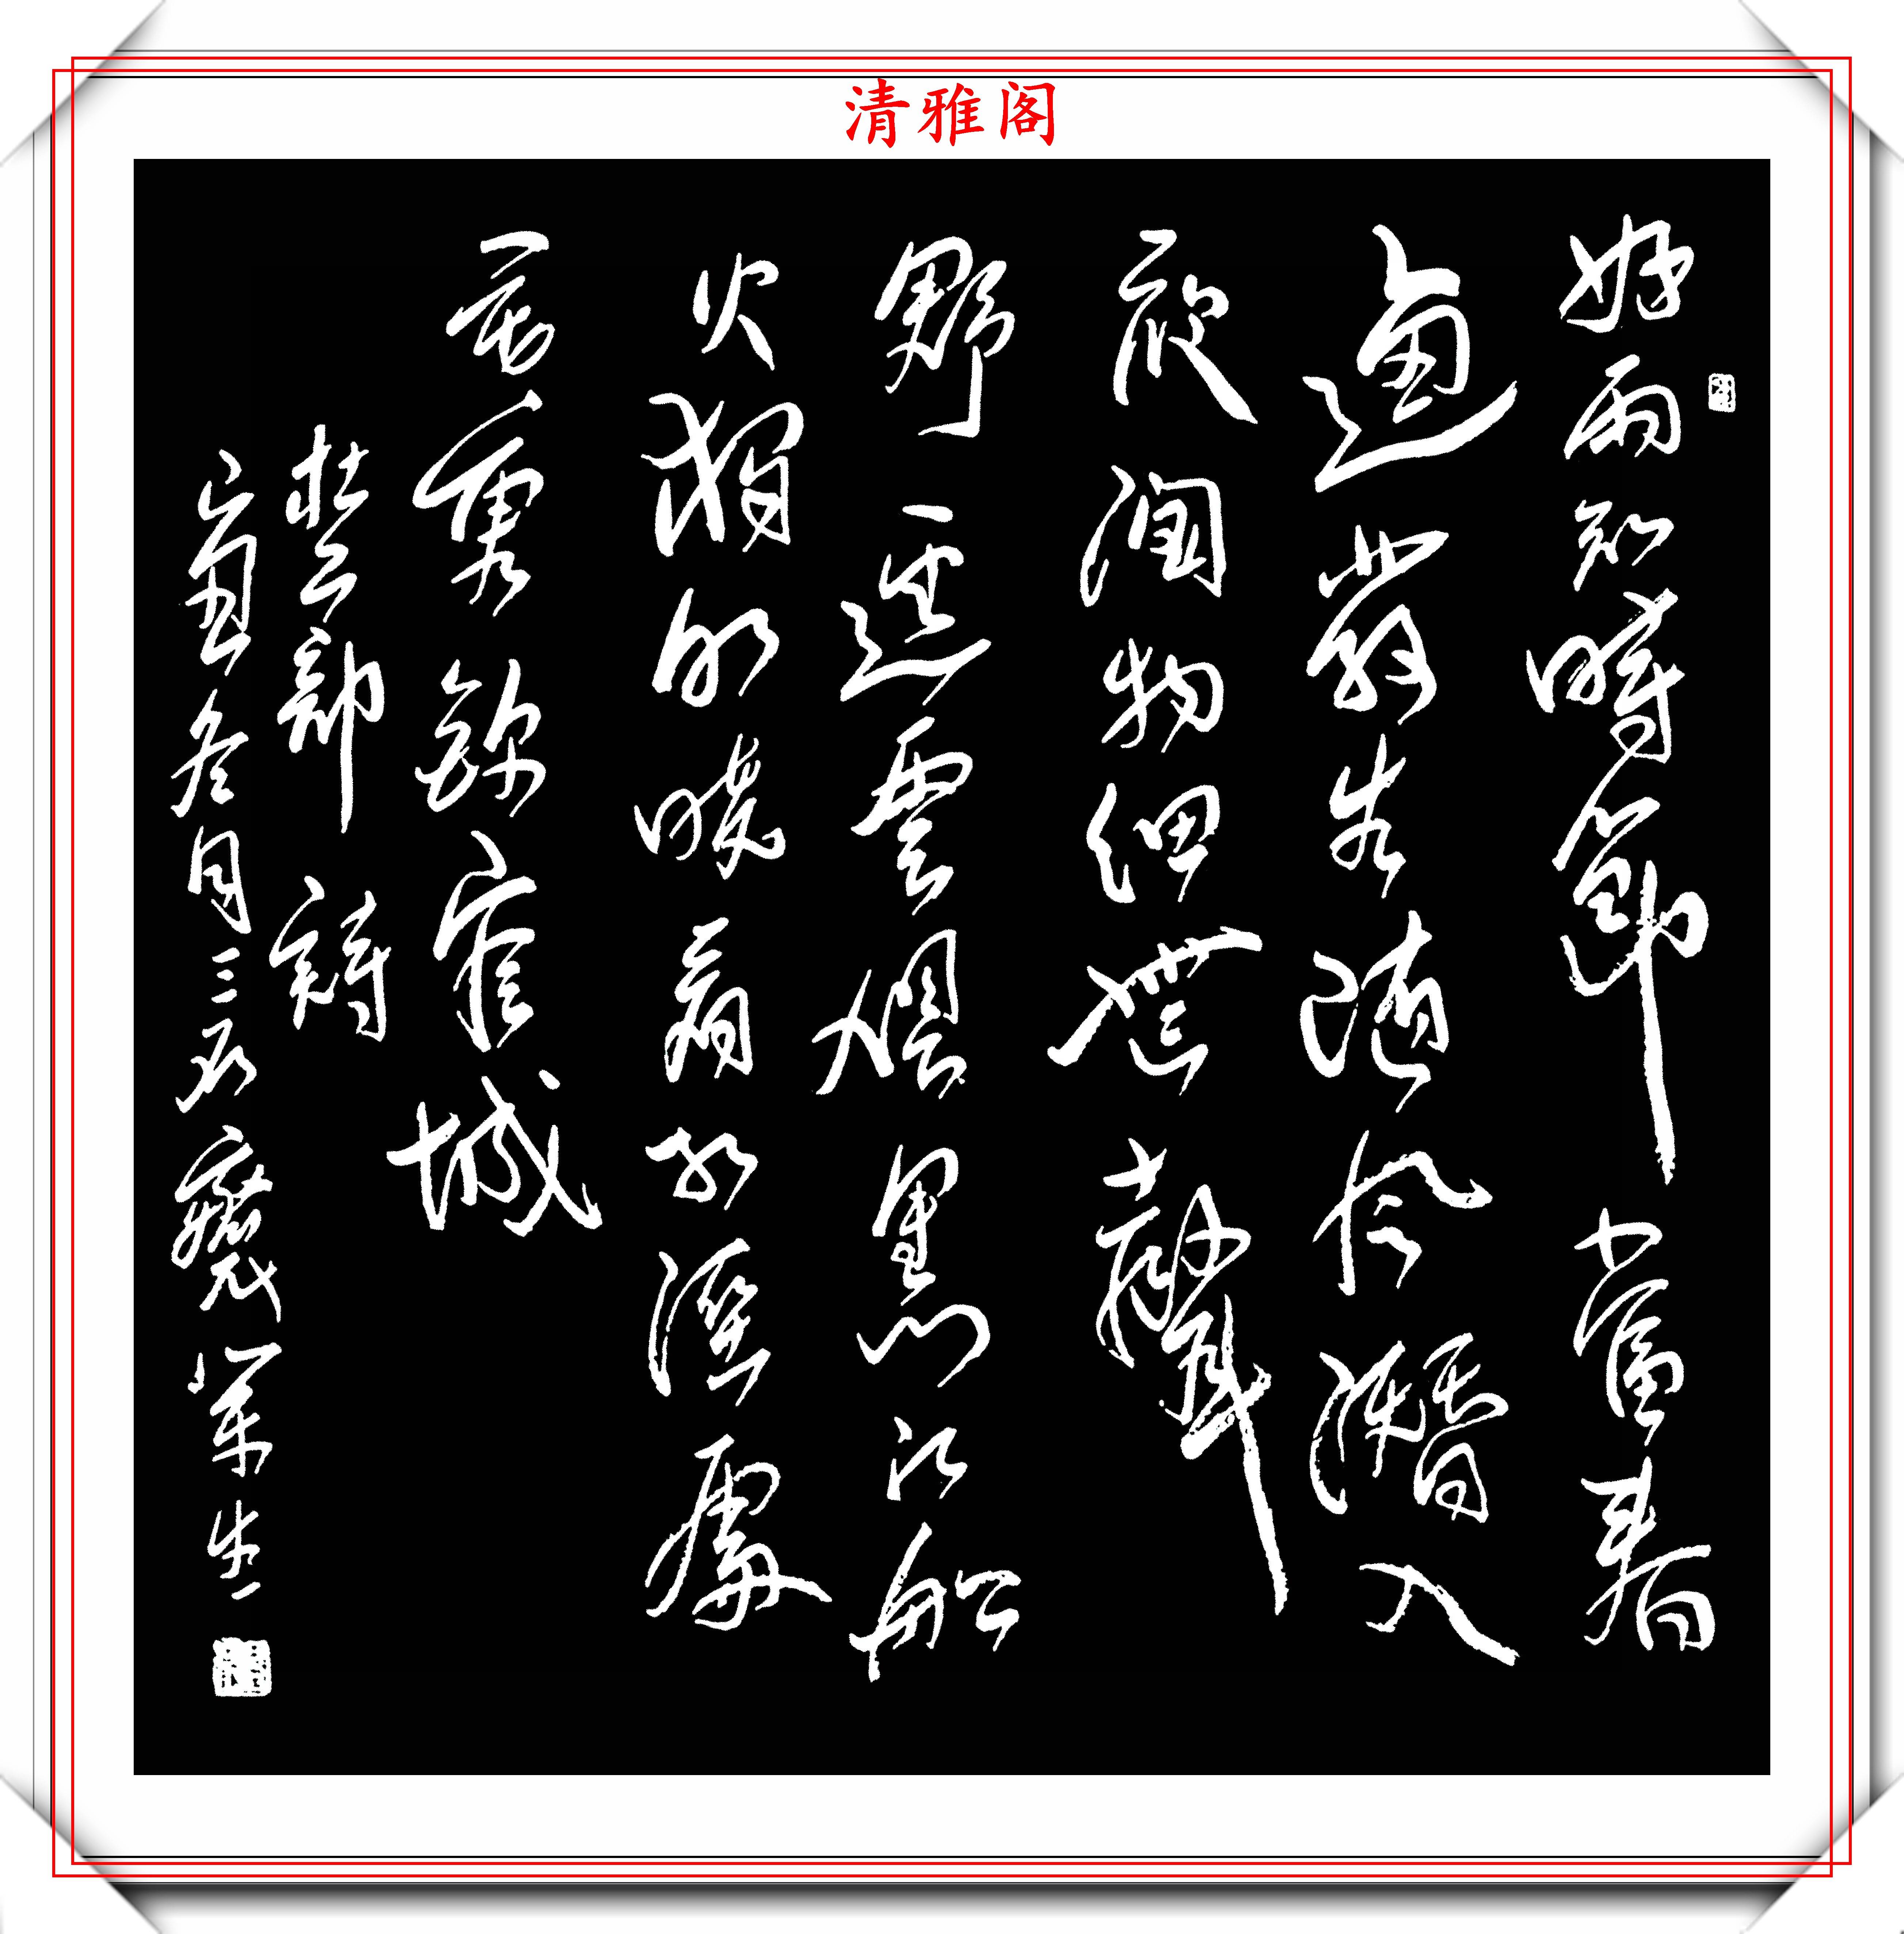 清雅阁
好雨知時節當春
迺發生隨風潛入
夜潤物細無聲
野逕雲俱黑江船
火獨明曉看紅濕處
花重錦官城
杜工部詩
冬月三